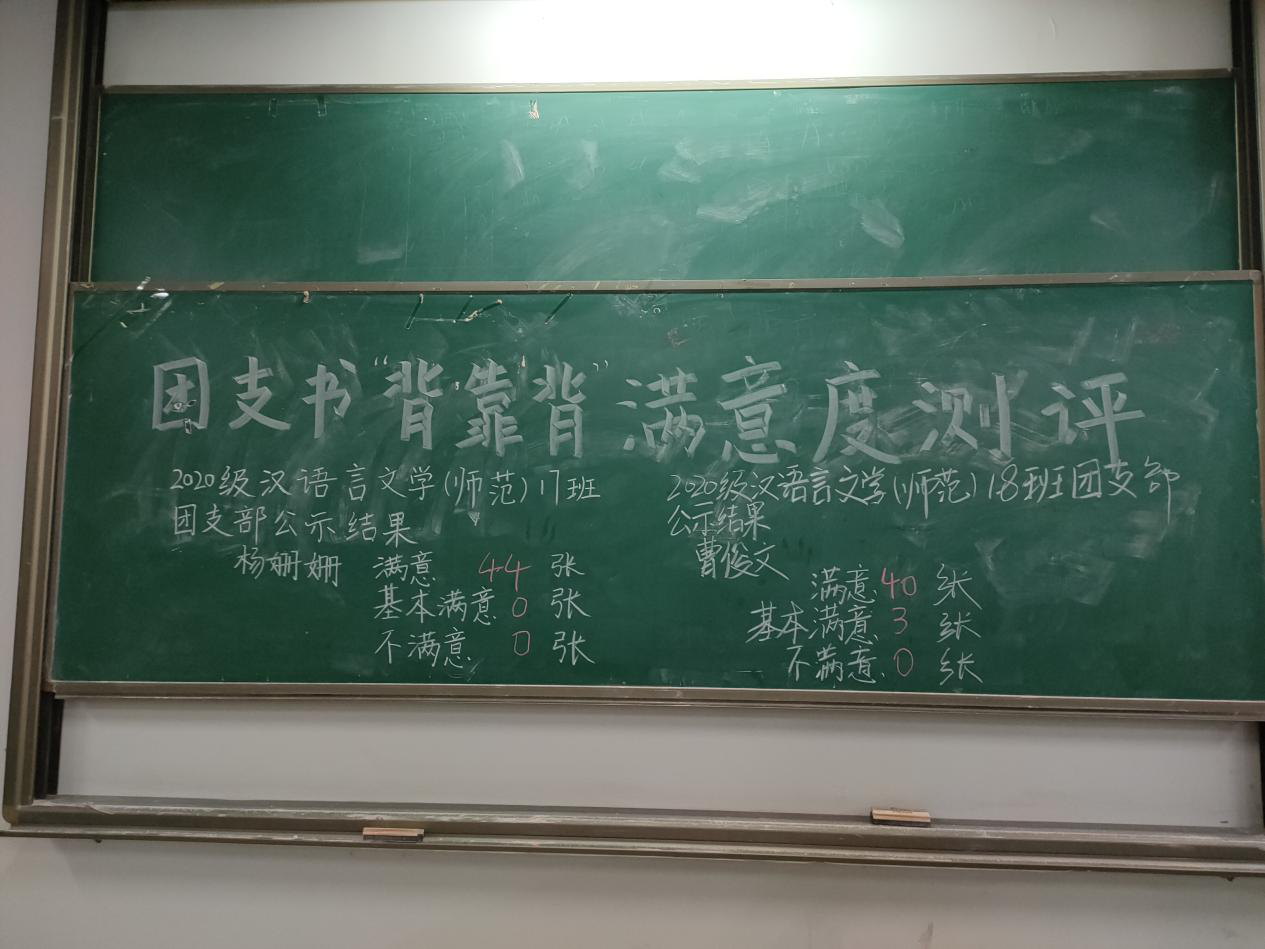 团支书“背靠背”满意度测评
2020级汉语言文学(师范)17班
团支部公示结果
杨姗姗 满意 44 张
基本满意 0 张
不满意 0 张
2020级汉语言文学(师范)18班团支部
公示结果
曹俊文
满意 40 张
基本满意 3 张
不满意 0 张